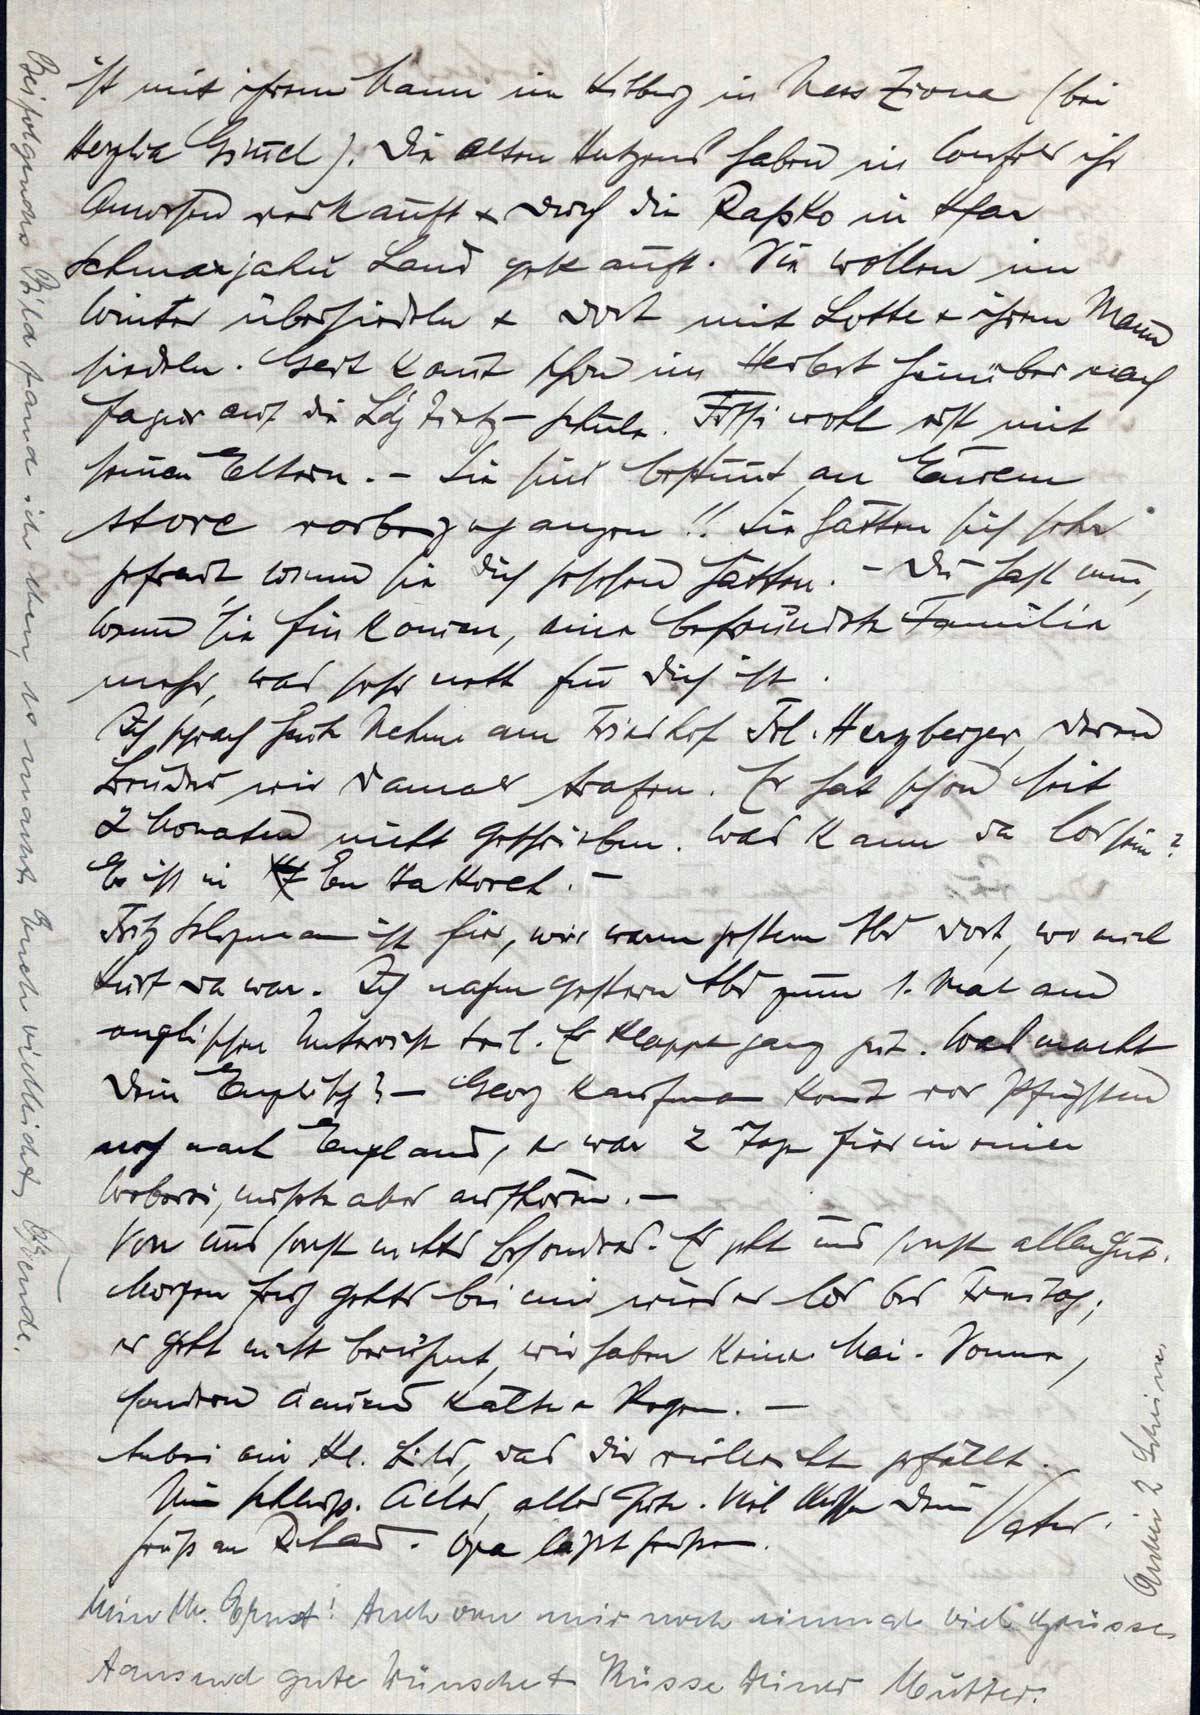 ist mit ihrem Mann im Kibbuz in Ness Ziona (bei
Herzlia Gimel). Die alten haben in ihr
Anwesen verkauft & durch die Raßko in Kfar
Schmarjahu Land gekauft. Sie wollen im
Winter übersiedeln & dort mit Lotte & ihrem Mann
siedeln. Gert kommt schon im Herbst hinüber nach
auf die Schule. wohl erst mit
seinen Eltern. – Sie sind bestimmt an Eurem
Store vorbeigegangen!! Sie hätten sich sehr
gefreut, wenn sie Dich gesehen hätten. – Du hast nun,
wenn sie hinkommen, eine befreundete Familie
mehr, was sehr nett für Dich ist.
Ich sprach heute am Friedhof Frl. Herzberger, deren
Bruder wir damals trafen. Er hat schon seit
2 Monaten nicht geschrieben. Was kann da los sein?
Er ist in En Ha Koreh. –
Fritz ist hier, wir waren gestern Abd dort, wo auch
Kurt da war. Ich nahm gestern Abd zum 1. Mal am
englischen Unterricht teil. Es klappte ganz gut. Was macht
Dein Englisch? – Georg Kaufmann kommt vor Pfingsten
noch nach England, er war 2 Tage hier in einer
Weberei, mußte aber aufhören. –
Von uns sonst nichts Besonderes. Es geht uns sonst allen gut.
Morgen früh geht's bei mir wieder los bis Freitag;
es geht nicht berühmt, wir haben keine Mai-Sonne,
sondern dauernd Kälte & Regen. –
Anbei ein kl. Bild, das Dir vielleicht gefällt.
Nun Schluss. Alles, alles Gute. Viel Küsse Dein Vater.
Gruß an . Opa läßt grüßen.
Mein lb. Ernst! Auch von mir noch einmal viel Grüsse
tausend gute Wünsche & Küsse Deiner Mutter.
Beifolgendes Bild fand ich eben, es macht Euch vielleicht Freude.
Anbei 2 Scheine